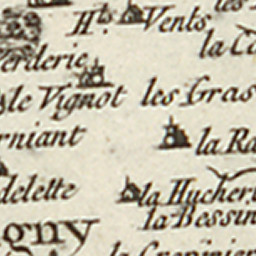 les
Hts. Vents
la Ca
Verderie
le Vignot les Gras
rniant
la Ra
delette
la Hucheri
la Bessin
gny
la Crepinier